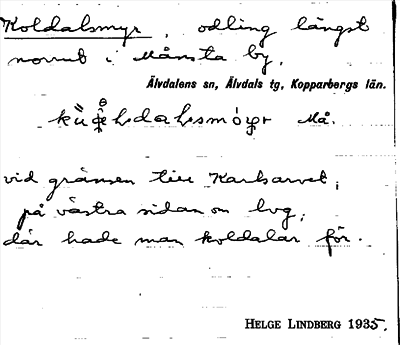 Koldalsmyr, odling längst
norrut i Månsta by.
Älvdalens sn, Älvdals tg, Kopparbergs län.
Må.
vid gränsen till Karlsarvet,
på västra sidan om lvg,
där hade man koldalar för.
HELGE LINDBERG 1935.